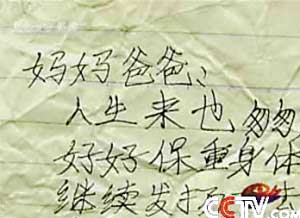 妈妈爸爸:
人生来也匆匆
好好保重身体
继续发扬
CCTV.com